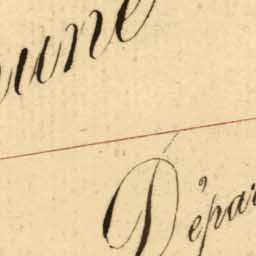 une
Dépar